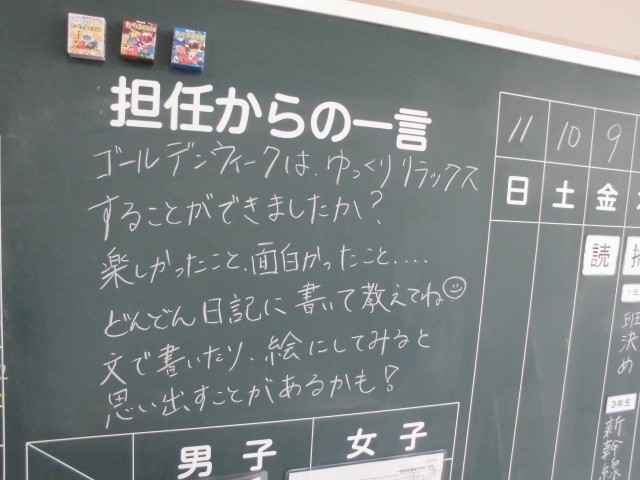 担任からの一言
ゴールデンウィークは、ゆっくりリラックス
することができましたか？
楽しかったこと、面白かったこと、....
どんどん日記に書いて教えてね
文で書いたり、絵にしてみると
思い出すことがあるかも！
男子 女子
11 10 9
日 土 金
読
班決め
3年生
新幹線